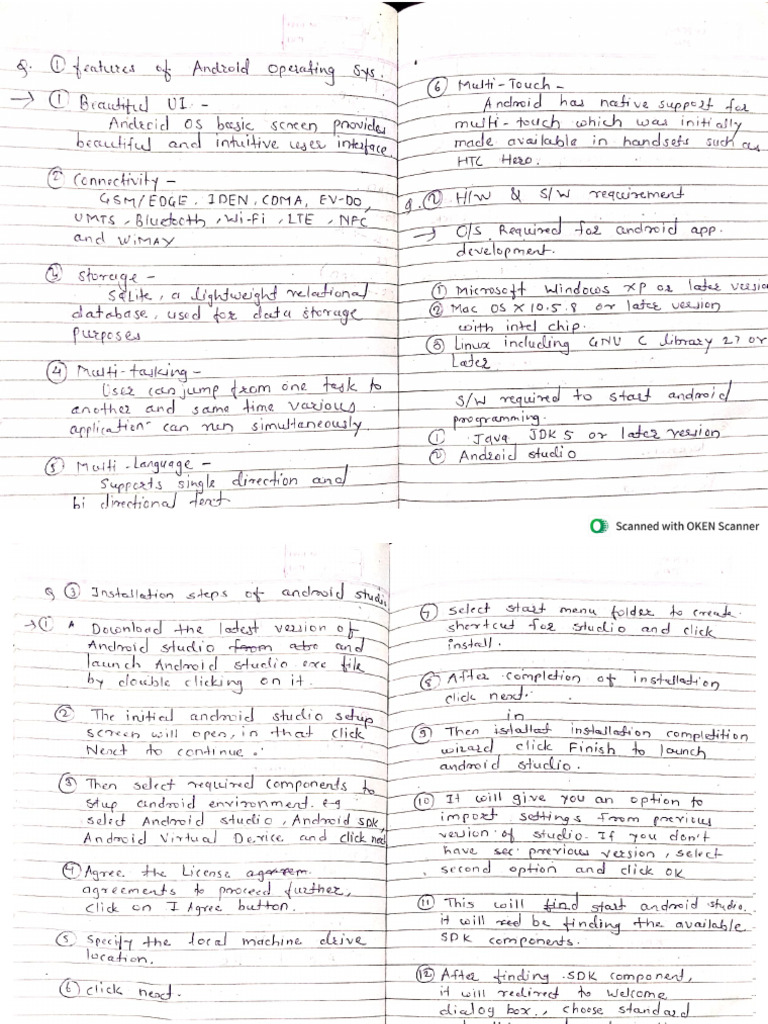 Q. ① features of Android Operating Sys.
→ ① Beautiful UI -
Android OS basic screen provides
beautiful and intuitive user interface
② Connectivity -
GSM/EDGE, IDEN, CDMA, EV-DO,
UMTS, Bluetooth, Wi-Fi, LTE, NFC
and WiMAX
③ Storage -
SQlite, a lightweight relational
database, used for data storage
purposes
④ Multi-tasking -
User can jump from one task to
another and same time various
application can run simultaneously
⑤ Multi-Language -
Supports single direction and
bi directional text
⑥ Multi-Touch -
Android has native support for
multi-touch which was initially
made available in handsets such as
HTC Hero.
Q. ② H/W & S/W requirement
→ O/S Required for android app.
development.
① Microsoft Windows XP or later version
② Mac OS X 10.5.8 or later version
with intel chip.
③ Linux including GNU C library 2.7 or
Later
S/W required to start android
programming.
① Java JDK 5 or later version
② Android studio
Scanned with OKEN Scanner
Q ③ Installation steps of android studio
→ ① A Download the latest version of
Android studio from and
launch Android studio exe file
by double clicking on it.
② The initial android studio setup
screen will open, in that click
Next to continue.
③ Then select required components to
stup android environment. e.g
select Android studio, Android SDK,
Android Virtual Device and click next
④ Agree the License
agreements to proceed further,
click on I Agree button.
⑤ Specify the local machine drive
location.
⑥ click next.
⑦ Select start menu folder to create
shortcut for studio and click
install.
⑧ After completion of installation
click next.
⑨ Then in installation completition
wizard click Finish to launch
android studio.
⑩ It will give you an option to
import settings from previous
version of studio. If you don't
have previous version, select
second option and click OK
⑪ This will start android studio.
it will be finding the available
SDK components.
⑫ After finding SDK component,
it will redirect to Welcome
dialog box., choose standard